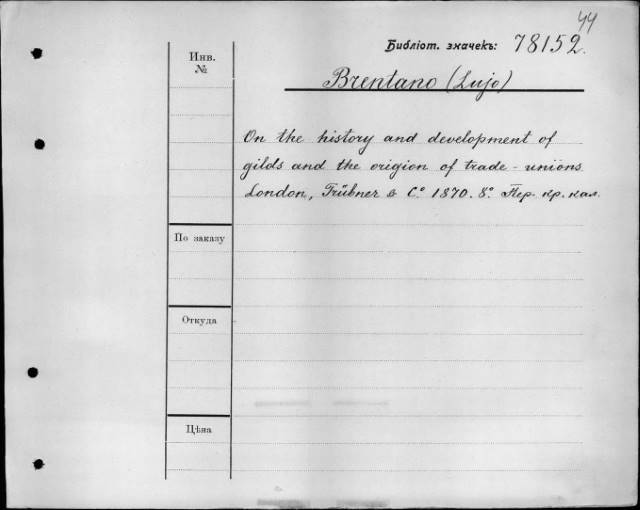 44
Библіот. значекъ: 78152.
Инв.
№
Brentano (Lujo)
On the history and development of
gilds and the origion of trade-unions
London, Trübner & Cº 1870. 8º. Пер. кр. кал.
По заказу
Откуда
Цѣна